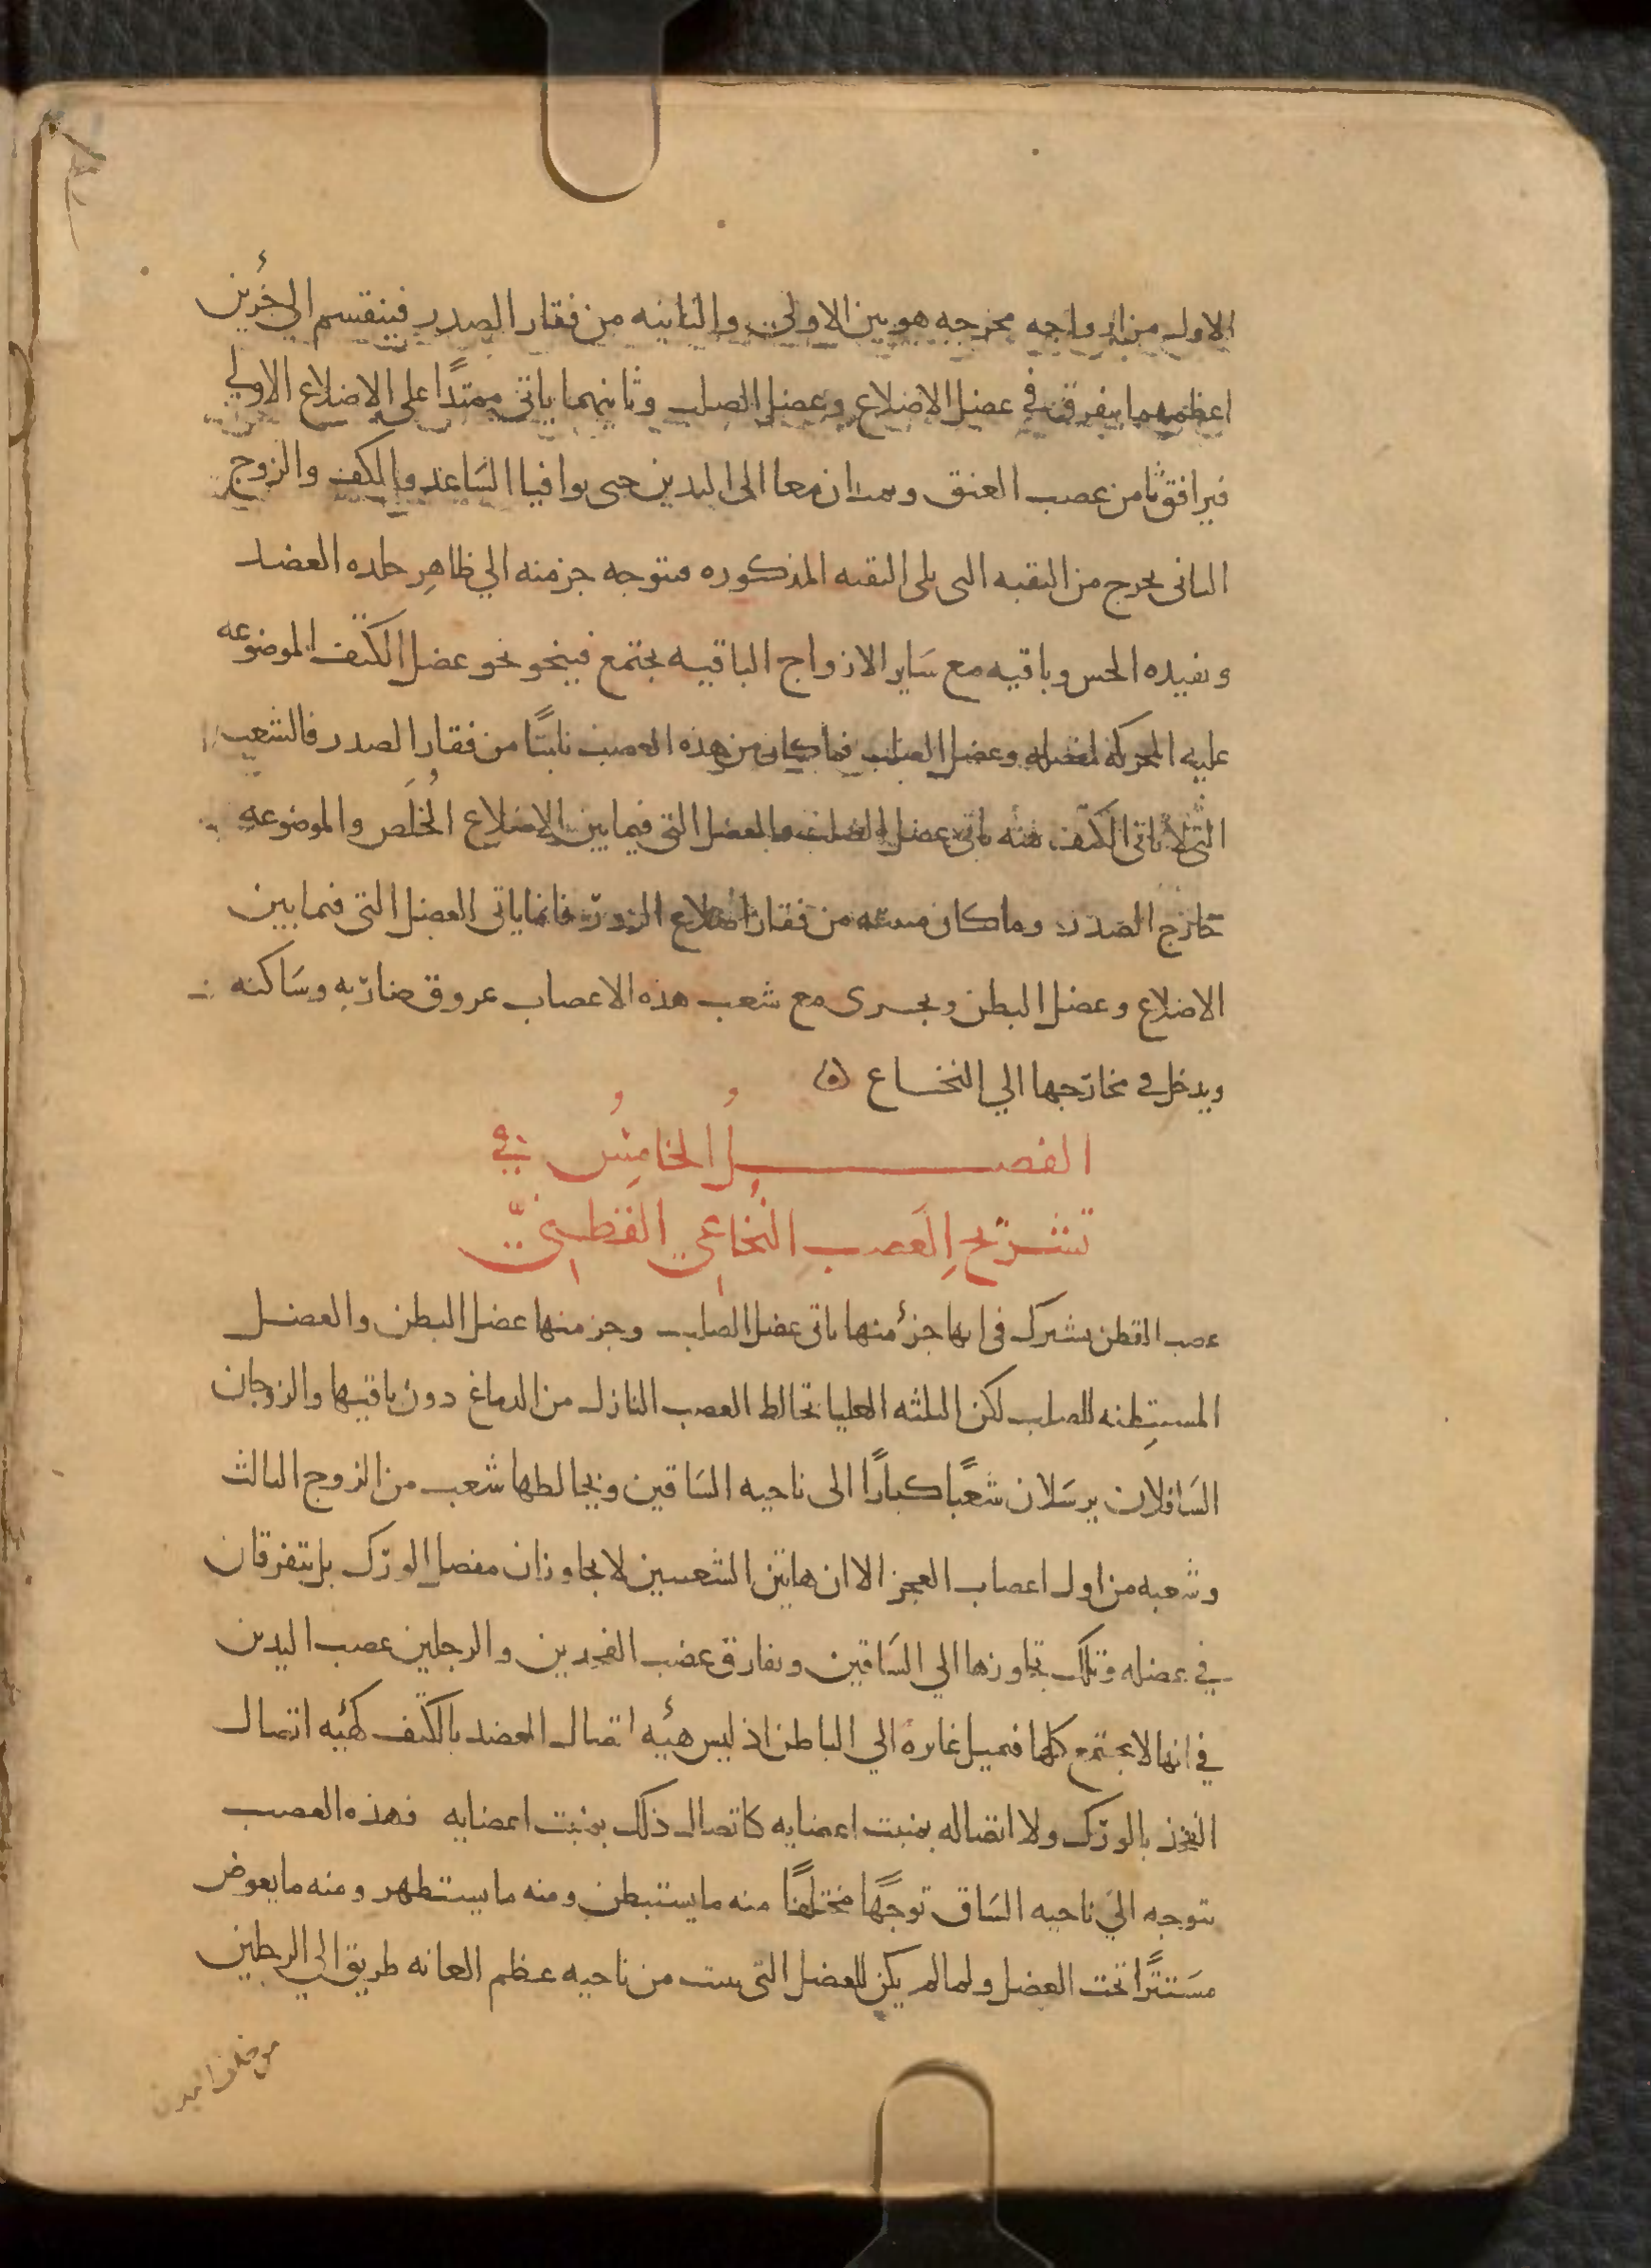 الاول من ازواجه مخرجه هو بين الاولى والثانيه من فقار الصدر فينقسم الى جزئين
اعظمهما يتفرق في عضل الاضلاع وعضل الصلب وثانيهما ياتي ممتدًا على الاضلاع الاولي
فيرافق ثامن عصب العنق ويمتدان معا الى اليدين حتى يوافيا الساعد والكف والزوج
الثانى يخرج من الثقبه التى يلى الثقبه المذكوره فيتوجه جز منه الي ظاهِر جلده العضد
ويفيده الحس وباقيه مع سَاير الازواج الباقيه يجتمع فينحو نحو عضل الكتف الموضوعه
عليه المحركه لمفصله وعضل الصلب فما كان من هذه العصب نابتًا من فقار الصدر فالشعب
التى لا ياتى الكتف منه ياتى عضل الصلب والعضل التى فيما بين الاضلاع الخُلَّص والموضوعه
خارج الصدر وما كان منبته من فقار اضلاع الزور فانما ياتى العضل التى فيما بين
الاضلاع وعضل البطن ويجرى مع شعب هذه الاعصاب عروق ضاربه وسَاكنه
ويدخل في مخارجها الي النخاع
الفصل الخامِسُ في
تشريح العَصبِ النُخاعي القَطَنيّ
عصب القطن يشترك فى انها جزءٌ منها ياتى عضل الصلب وجز منها عضل البطن والعضل
المستبطنه للصلب لكن الثلثه العليا تخالط العصب النازل من الدماغ دون باقيها والزوجان
السَافلان يرسَلان شعبًا كبارًا الى ناحيه السَاقين ويخالطها شعب من الزوج الثالث
وشعبه من اول اعصاب العجز الا ان هاتين الشعبتين لا يجاوزان مفصل الورك بل يتفرقان
في عضله وتلك تجاوزها الي السَاقين ويفارق عصب الفخذين والرجلين عصب اليدين
في انها لا يجتمع كلها فيميل غايره الي الباطن اذ ليس هيئه اتصال العضد بالكتف كهيئه اتصال
الفخذ بالورك ولا اتصاله بمنبت اعضايه كاتصال ذلك بمنبت اعضايه فهذه العصب
يتوجه الي ناحيه السَاق توجهًا مختلفًا منه ما يستبطن ومنه ما يستظهر ومنه ما يغوض
مسَتترًا تحت العضل ولما لم يكن للعضل التى ينبت من ناحيه عظم العانه طريق الي الرجلين
من خلف البدن